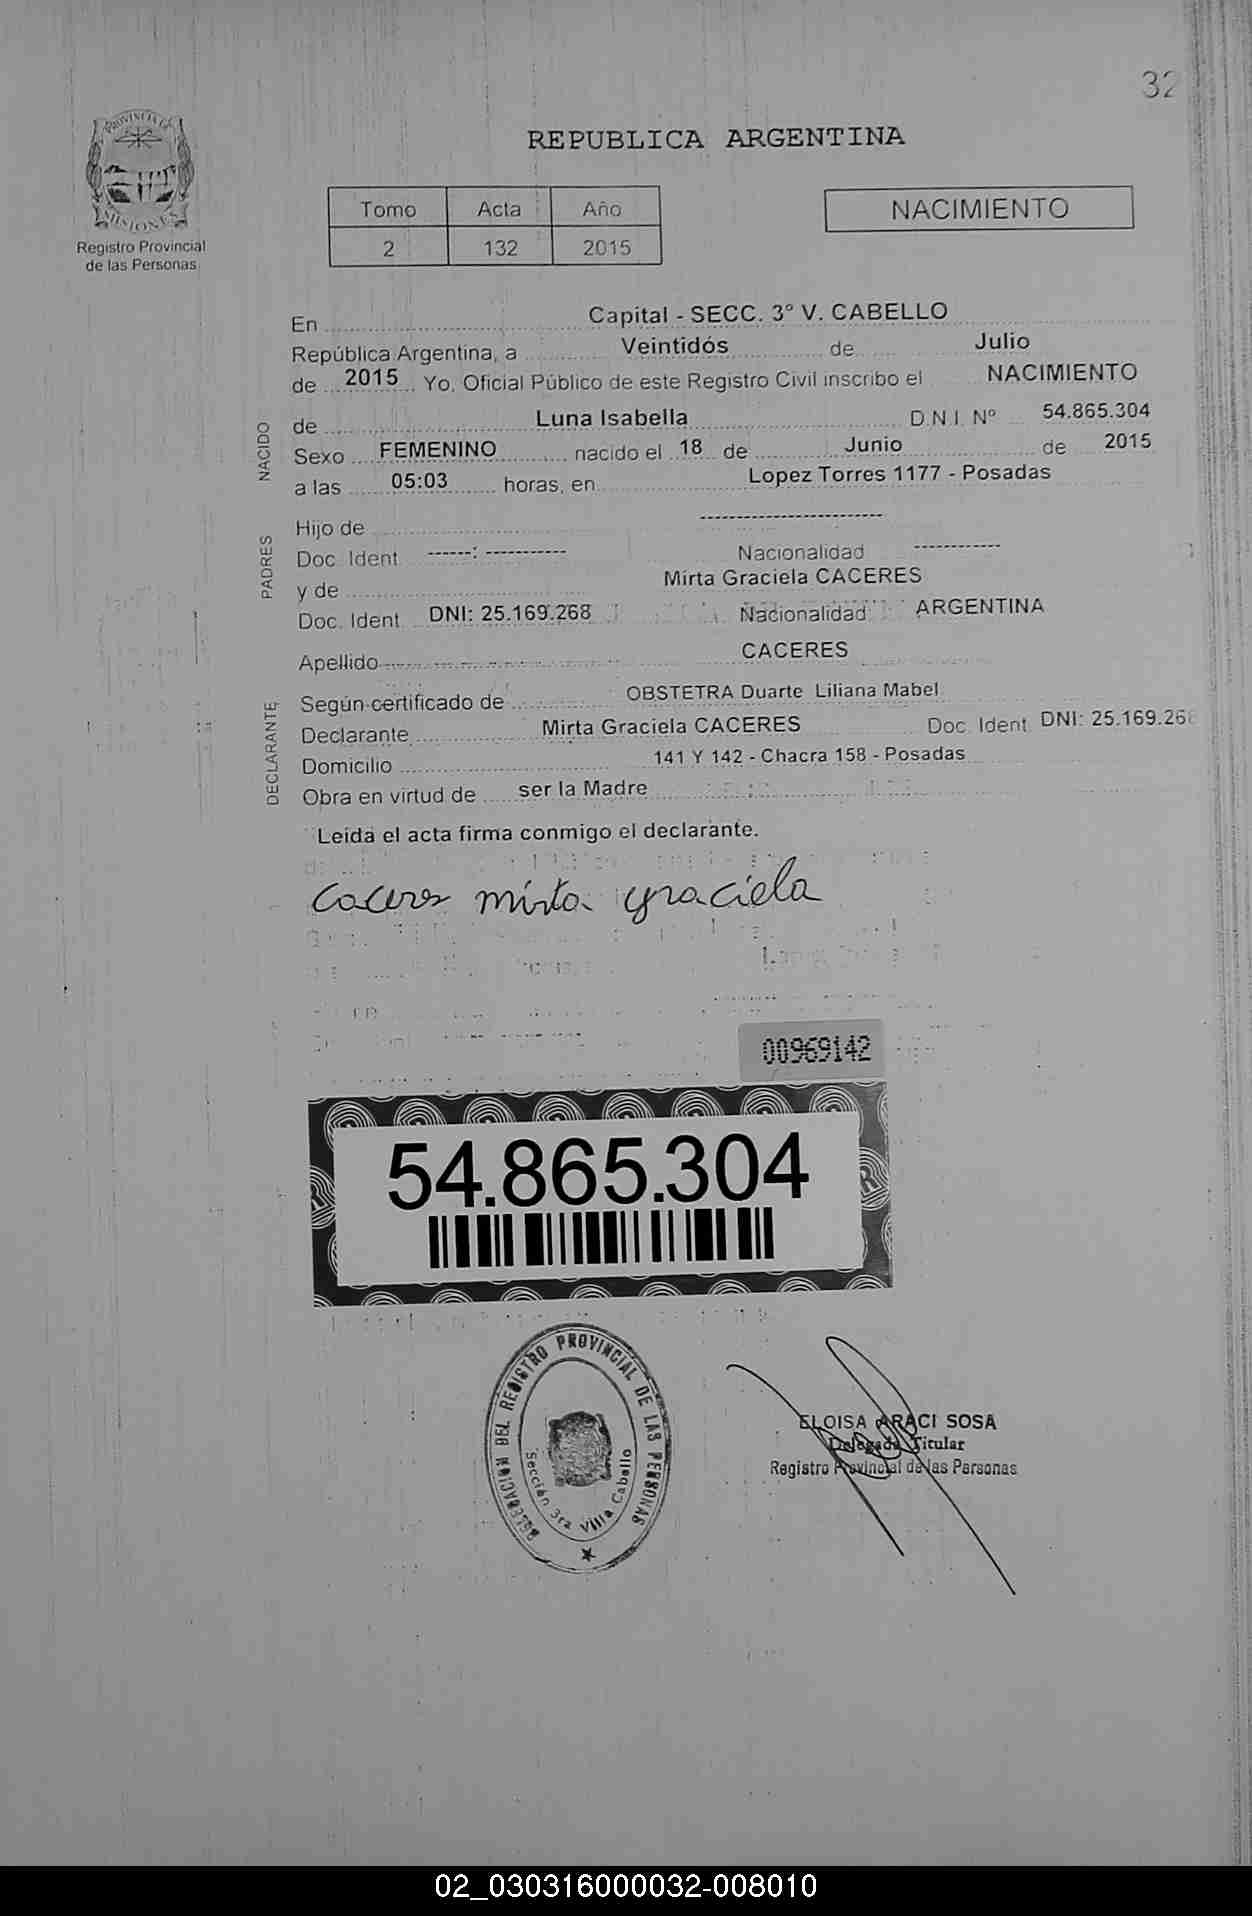 32
PROVINCIA DE
MISIONES
Registro Provincial
de las Personas
REPUBLICA ARGENTINA
Tomo Acta Año
2 132 2015
NACIMIENTO
En Capital - SECC. 3° V. CABELLO
República Argentina, a Veintidós de Julio
de 2015 Yo, Oficial Público de este Registro Civil inscribo el NACIMIENTO
NACIDO
de Luna Isabella D.N.I. Nº 54.865.304
Sexo FEMENINO nacido el 18 de Junio de 2015
a las 05:03 horas, en Lopez Torres 1177 - Posadas
PADRES
Hijo de -------------------------
Doc. Ident. ------: ----------- Nacionalidad ------------
y de Mirta Graciela CACERES
Doc. Ident. DNI: 25.169.268 Nacionalidad ARGENTINA
Apellido CACERES
DECLARANTE
Según certificado de OBSTETRA Duarte Liliana Mabel
Declarante Mirta Graciela CACERES Doc. Ident. DNI: 25.169.268
Domicilio 141 Y 142 - Chacra 158 - Posadas
Obra en virtud de ser la Madre
Leída el acta firma conmigo el declarante.
Caceres mirta graciela
00969142
54.865.304
DELEGACION DEL REGISTRO PROVINCIAL DE LAS PERSONAS
Sección 3ra Villa Cabello
ELOISA ARACI SOSA
Delegada Titular
Registro Provincial de las Personas
02_030316000032-008010